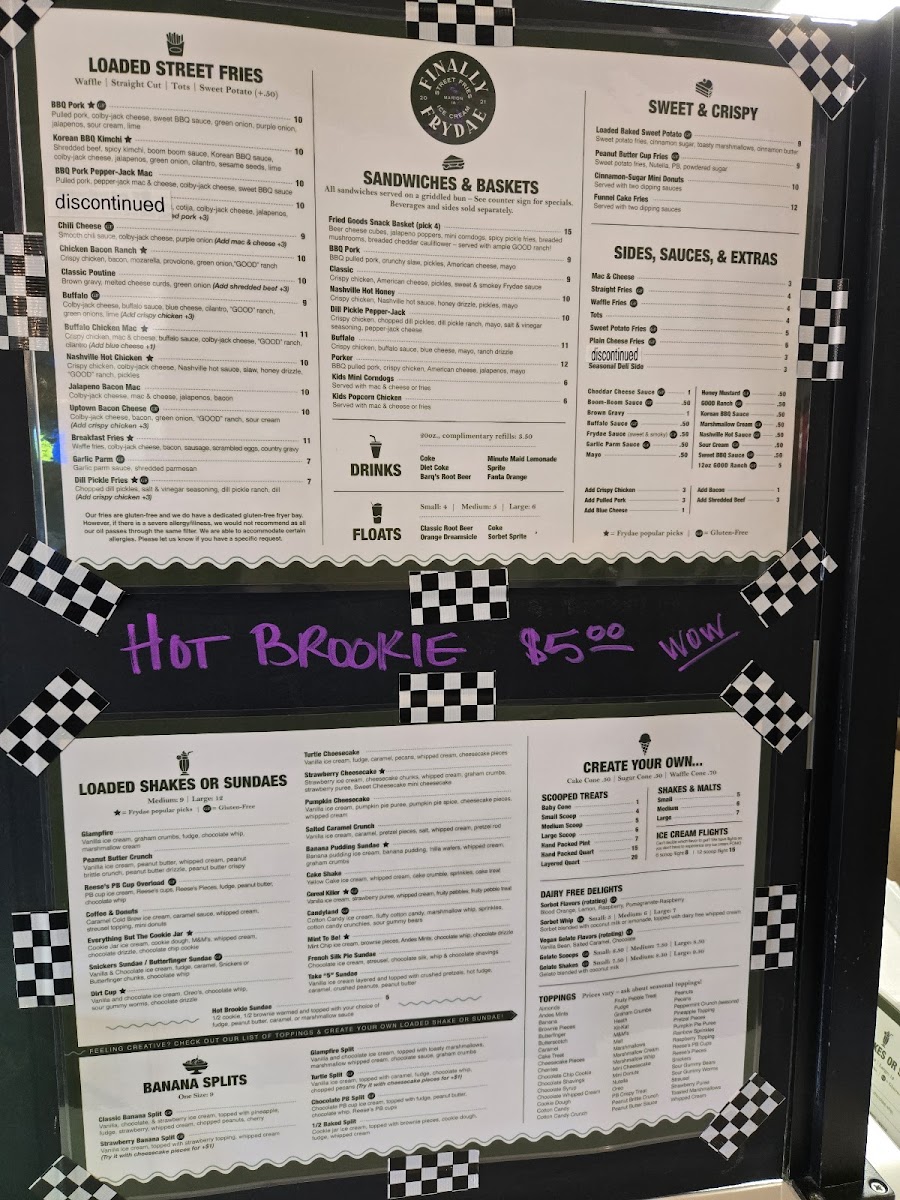 LOADED STREET FRIES
Waffle | Straight Cut | Tots | Sweet Potato (+.50)
BBQ Pork ★ GF 10
Pulled pork, colby-jack cheese, sweet BBQ sauce, green onion, purple onion,
jalapenos, sour cream, lime
Korean BBQ Kimchi ★ 10
Shredded beef, spicy kimchi, boom boom sauce, Korean BBQ sauce,
colby-jack cheese, jalapenos, green onion, cilantro, sesame seeds, lime
BBQ Pork Pepper-Jack Mac 10
Pulled pork, pepper-jack mac & cheese, colby-jack cheese, sweet BBQ sauce
discontinued 10
cotija, colby-jack cheese, jalapenos,
pork +3)
Chili Cheese GF 9
Smooth chili sauce, colby-jack cheese, purple onion (Add mac & cheese +3)
Chicken Bacon Ranch ★ 10
Crispy chicken, bacon, mozarella, provolone, green onion, "GOOD" ranch
Classic Poutine 10
Brown gravy, melted cheese curds, green onion (Add shredded beef +3)
Buffalo GF 9
Colby-jack cheese, buffalo sauce, blue cheese, cilantro, "GOOD" ranch,
green onions, lime (Add crispy chicken +3)
Buffalo Chicken Mac ★ 11
Crispy chicken, mac & cheese, buffalo sauce, colby-jack cheese, "GOOD" ranch,
cilantro (Add blue cheese +1)
Nashville Hot Chicken ★ 10
Crispy chicken, colby-jack cheese, Nashville hot sauce, slaw, honey drizzle,
"GOOD" ranch, pickles
Jalapeno Bacon Mac 10
Colby-jack cheese, mac & cheese, jalapenos, bacon
Uptown Bacon Cheese GF 10
Colby-jack cheese, bacon, green onion, "GOOD" ranch, sour cream
(Add crispy chicken +3)
Breakfast Fries ★ 11
Waffle fries, colby-jack cheese, bacon, sausage, scrambled eggs, country gravy
Garlic Parm GF 7
Garlic parm sauce, shredded parmesan
Dill Pickle Fries ★ GF 7
Chopped dill pickles, salt & vinegar seasoning, dill pickle ranch, dill
(Add crispy chicken +3)
Our fries are gluten-free and we do have a dedicated gluten-free fryer bay.
However, if there is a severe allergy/illness, we would not recommend as all
our oil passes through the same filter. We are able to accommodate certain
allergies. Please let us know if you have a specific request.
FINALLY
STREET FRIES
20 MARION IA 21
ICE CREAM
FRYDAE
SANDWICHES & BASKETS
All sandwiches served on a griddled bun – See counter sign for specials.
Beverages and sides sold separately.
Fried Goods Snack Basket (pick 4) 15
Beer cheese cubes, jalapeno poppers, mini corndogs, spicy pickle fries, breaded
mushrooms, breaded cheddar cauliflower – served with ample GOOD ranch!
BBQ Pork 9
BBQ pulled pork, crunchy slaw, pickles, American cheese, mayo
Classic 9
Crispy chicken, American cheese, pickles, sweet & smokey Frydae sauce
Nashville Hot Honey 10
Crispy chicken, Nashville hot sauce, honey drizzle, pickles, mayo
Dill Pickle Pepper-Jack 10
Crispy chicken, chopped dill pickles, dill pickle ranch, mayo, salt & vinegar
seasoning, pepper-jack cheese
Buffalo 11
Crispy chicken, buffalo sauce, blue cheese, mayo, ranch drizzle
Porker 12
BBQ pulled pork, crispy chicken, American cheese, jalapenos, mayo
Kids Mini Corndogs 6
Served with mac & cheese or fries
Kids Popcorn Chicken 6
Served with mac & cheese or fries
DRINKS
20oz., complimentary refills: 3.50
Coke Minute Maid Lemonade
Diet Coke Sprite
Barq's Root Beer Fanta Orange
FLOATS
Small: 4 | Medium: 5 | Large: 6
Classic Root Beer Coke
Orange Dreamsicle Sorbet Sprite
SWEET & CRISPY
Loaded Baked Sweet Potato GF 9
Sweet potato fries, cinnamon sugar, toasty marshmallows, cinnamon butter
Peanut Butter Cup Fries GF 9
Sweet potato fries, Nutella, PB, powdered sugar
Cinnamon-Sugar Mini Donuts 10
Served with two dipping sauces
Funnel Cake Fries 12
Served with two dipping sauces
SIDES, SAUCES, & EXTRAS
Mac & Cheese 3
Straight Fries GF 4
Waffle Fries GF 4
Tots 4
Sweet Potato Fries GF 5
Plain Cheese Fries GF 6
discontinued 3
Seasonal Deli Side 3
Cheddar Cheese Sauce GF 1
Boom-Boom Sauce GF .50
Brown Gravy 1
Buffalo Sauce GF .50
Frydae Sauce (sweet & smoky) GF .50
Garlic Parm Sauce GF .50
Mayo .50
Honey Mustard GF .50
GOOD Ranch GF .50
Korean BBQ Sauce .50
Marshmallow Cream GF .50
Nashville Hot Sauce GF .50
Sour Cream GF .50
Sweet BBQ Sauce GF .50
12oz GOOD Ranch GF 5
Add Crispy Chicken 3
Add Pulled Pork 3
Add Blue Cheese 1
Add Bacon 1
Add Shredded Beef 3
★ = Frydae popular picks | GF = Gluten-Free
HOT BROOKIE $5.00 WOW
LOADED SHAKES OR SUNDAES
Medium: 9 | Large: 12
★ = Frydae popular picks | GF = Gluten-Free
Glampfire
Vanilla ice cream, graham crumbs, fudge, chocolate whip,
marshmallow cream
Peanut Butter Crunch
Vanilla ice cream, peanut butter, whipped cream, peanut
brittle crunch, peanut butter drizzle, peanut butter crispy
Reese's PB Cup Overload GF
PB cup ice cream, Reese's cups, Reese's Pieces, fudge, peanut butter,
chocolate whip
Coffee & Donuts
Caramel Cold Brew ice cream, caramel sauce, whipped cream,
streusel topping, mini donuts
Everything But The Cookie Jar ★
Cookie Jar ice cream, cookie dough, M&M's, whipped cream,
chocolate drizzle, chocolate chip cookie
Snickers Sundae / Butterfinger Sundae GF
Vanilla & Chocolate ice cream, fudge, caramel, Snickers or
Butterfinger chunks, chocolate whip
Dirt Cup ★
Vanilla and chocolate ice cream, Oreo's, chocolate whip,
sour gummy worms, chocolate drizzle
Turtle Cheesecake
Vanilla ice cream, fudge, caramel, pecans, whipped cream, cheesecake pieces
Strawberry Cheesecake ★
Strawberry ice cream, cheesecake chunks, whipped cream, graham crumbs,
strawberry puree, Sweet Cheesecake mini cheesecake
Pumpkin Cheesecake
Vanilla ice cream, pumpkin pie puree, pumpkin pie spice, cheesecake pieces,
whipped cream
Salted Caramel Crunch
Vanilla ice cream, caramel, pretzel pieces, salt, whipped cream, pretzel rod
Banana Pudding Sundae ★
Banana pudding ice cream, banana pudding, nilla wafers, whipped cream,
graham crumbs
Cake Shake
Yellow Cake ice cream, whipped cream, cake crumble, sprinkles, cake treat
Cereal Killer ★ GF
Vanilla ice cream, strawberry puree, whipped cream, fruity pebbles, fruity pebble treat
Candyland GF
Cotton Candy ice cream, fluffy cotton candy, marshmallow whip, sprinkles,
cotton candy crunchies, sour gummy bears
Mint To Be! ★
Mint Chip ice cream, brownie pieces, Andes Mints, chocolate whip, chocolate drizzle
French Silk Pie Sundae
Chocolate ice cream, streusel, chocolate silk, whip & chocolate shavings
Take "5" Sundae
Vanilla ice cream layered and topped with crushed pretzels, hot fudge,
caramel, crushed peanuts, peanut butter
Hot Brookie Sundae 5
1/2 cookie, 1/2 brownie warmed and topped with your choice of
fudge, peanut butter, caramel, or marshmallow sauce
FEELING CREATIVE? CHECK OUT OUR LIST OF TOPPINGS & CREATE YOUR OWN LOADED SHAKE OR SUNDAE!
BANANA SPLITS
One Size: 9
Classic Banana Split GF
Vanilla, chocolate, & strawberry ice cream, topped with pineapple,
fudge, strawberry, whipped cream, chopped peanuts, cherry
Strawberry Banana Split GF
Vanilla ice cream, topped with strawberry topping, whipped cream
(Try it with cheesecake pieces for +$1)
Glampfire Split
Vanilla and chocolate ice cream, topped with toasty marshmallows,
marshmallow whipped cream, chocolate sauce, graham crumbs
Turtle Split GF
Vanilla ice cream, topped with caramel, fudge, chocolate whip,
chopped pecans (Try it with cheesecake pieces for +$1)
Chocolate PB Split GF
Chocolate PB cup ice cream, topped with fudge, peanut butter,
chocolate whip, Reese's PB cups
1/2 Baked Split
Cookie jar ice cream, topped with brownie pieces, cookie dough,
fudge, whipped cream
CREATE YOUR OWN...
Cake Cone .30 | Sugar Cone .50 | Waffle Cone .70
SCOOPED TREATS
Baby Cone 1
Small Scoop 4
Medium Scoop 5
Large Scoop 6
Hand Packed Pint 7
Hand Packed Quart 15
Layered Quart 20
SHAKES & MALTS
Small 5
Medium 6
Large 7
ICE CREAM FLIGHTS
6 scoop flight 8 | 12 scoop flight 15
DAIRY FREE DELIGHTS
Sorbet Flavors (rotating) GF
Blood Orange, Lemon, Raspberry, Pomegranate-Raspberry
Sorbet Whip GF Small: 5 | Medium: 6 | Large: 7
Sorbet blended with coconut milk or lemonade, topped with dairy free whipped cream
Vegan Gelato Flavors (rotating) GF
Vanilla Bean, Salted Caramel, Chocolate
Gelato Scoops GF
Gelato Shakes GF
Gelato blended with coconut milk
TOPPINGS Prices vary – ask about seasonal toppings!
Almonds
Andes Mints
Banana
Brownie Pieces
Butterfinger
Butterscotch
Caramel
Cake Treat
Cheesecake Pieces
Cherries
Chocolate Chip Cookie
Chocolate Shavings
Chocolate Syrup
Chocolate Whipped Cream
Cookie Dough
Cotton Candy
Cotton Candy Crunch
Fruity Pebble Treat
Fudge
Graham Crumbs
Heath
KitKat
M&M's
Malt
Marshmallows
Marshmallow Cream
Marshmallow Whip
Mini Cheesecake
Mini Donuts
Nutella
Oreo
PB Crispy Treat
Peanut Brittle Crunch
Peanut Butter Sauce
Peanuts
Pecans
Peppermint Crunch (seasonal)
Pineapple Topping
Pretzel Pieces
Pumpkin Pie Puree
Rainbow Sprinkles
Raspberry Topping
Reese's PB Cups
Reese's Pieces
Snickers
Sour Gummy Bears
Sour Gummy Worms
Streusel
Strawberry Puree
Toasted Marshmallows
Whipped Cream